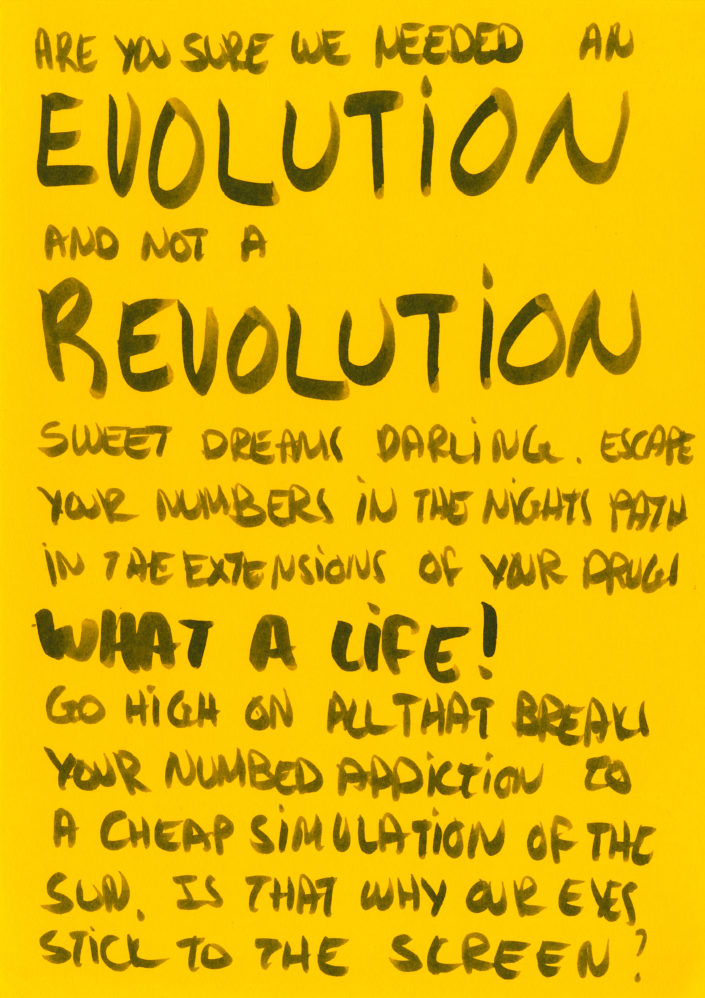 ARE YOU SURE WE NEEDED AN
EVOLUTiON
AND NOT A
REVOLUTiON
SWEET DREAMS DARLiNG. ESCAPE
YOUR NUMBERS iN THE NiGHTS PATH
iN THE EXTENSiONS OF YOUR DRUGS
WHAT A LiFE!
GO HiGH ON ALL THAT BREAKS
YOUR NUMBED ADDiCTiON TO
A CHEAP SiMULATiON OF THE
SUN. IS THAT WHY OUR EYES
STiCK TO THE SCREEN?